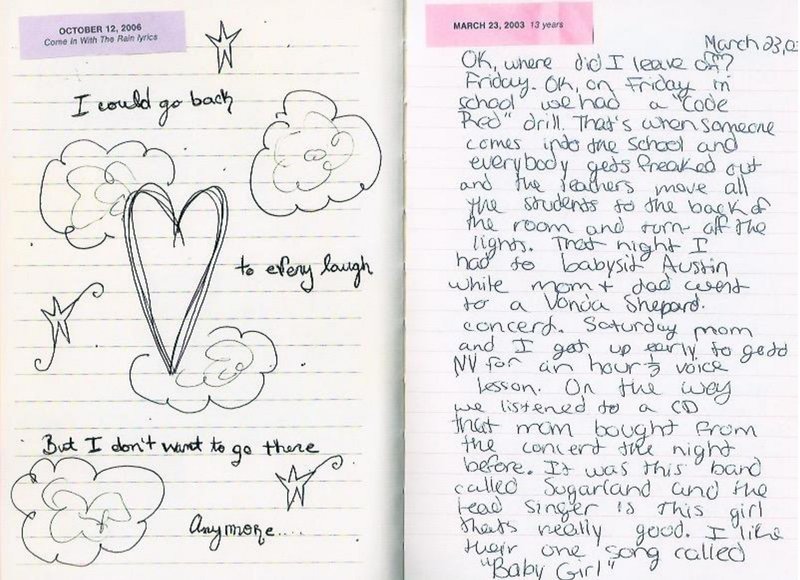 OCTOBER 12, 2006
Come In With The Rain lyrics
I could go back
to every laugh
But I don't want to go there
Anymore....
MARCH 23, 2003 13 years
March 23, 03
OK, where did I leave off?
Friday. OK, on Friday in
school we had a "Code
Red" drill. That's when someone
comes into the school and
everybody gets freaked out
and the teachers move all
the students to the back of
the room and turn off the
lights. That night I
had to babysit Austin
while mom + dad went
to a Vonda Shepard.
concert. Saturday mom
and I got up early to go to
NY for an hour ½ voice
lesson. On the way
we listened to a CD
that mom bought from
the concert the night
before. It was this band
called Sugarland and the
lead singer is this girl
thats really good. I like
their one song called
"Baby Girl"